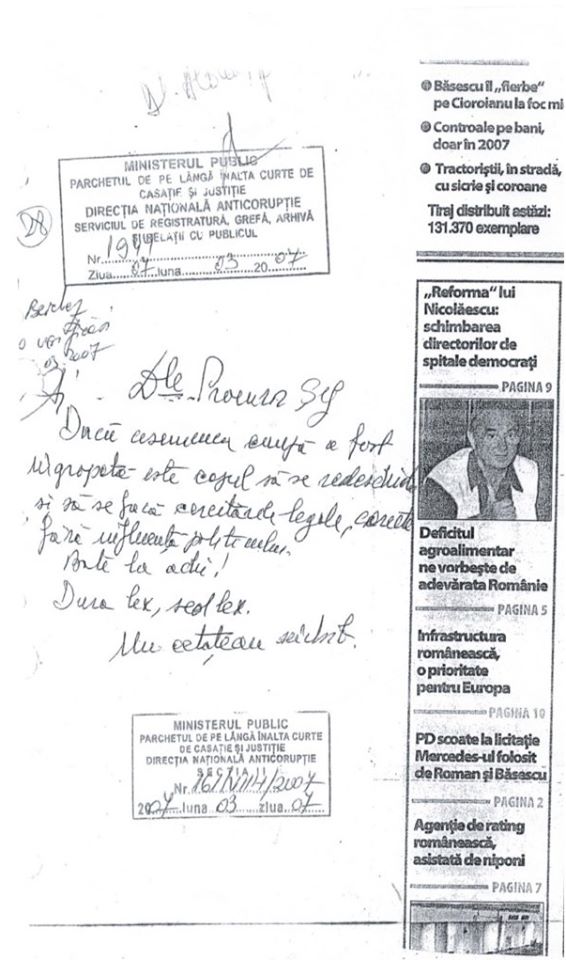 28
MINISTERUL PUBLIC
PARCHETUL DE PE LÂNGĂ ÎNALTA CURTE DE
CASAȚIE ȘI JUSTIȚIE
DIRECȚIA NAȚIONALĂ ANTICORUPȚIE
SERVICIUL DE REGISTRATURĂ, GREFĂ, ARHIVĂ
ȘI RELAȚII CU PUBLICUL
Nr.
Ziua 07 luna 03 2007
03 2007
Dle Procuror Șef
Dacă asemenea a fost
îngropată este cazul să se redeschidă
și să se facă cercetările legale, corecte
fără influența politicului.
Dura lex, sed lex.
Un cetățean
MINISTERUL PUBLIC
PARCHETUL DE PE LÂNGĂ ÎNALTA CURTE
DE CASAȚIE ȘI JUSTIȚIE
DIRECȚIA NAȚIONALĂ ANTICORUPȚIE
SECȚIA
Nr. /2007
luna 03 ziua 07
Băsescu îl „fierbe“
pe Cioroianu la foc mi
Controale pe bani,
doar în 2007
Tractoriștii, în stradă,
cu sicrie și coroane
Tiraj distribuit astăzi:
131.370 exemplare
„Reforma“ lui
Nicolăescu:
schimbarea
directorilor de
spitale democrați
PAGINA 9
Deficitul
agroalimentar
ne vorbește de
adevărata Românie
PAGINA 5
Infrastructura
românească,
o prioritate
pentru Europa
PAGINA 10
PD scoate la licitație
Mercedes-ul folosit
de Roman și Băsescu
PAGINA 2
Agenție de rating
românească,
asistată de niponi
PAGINA 7